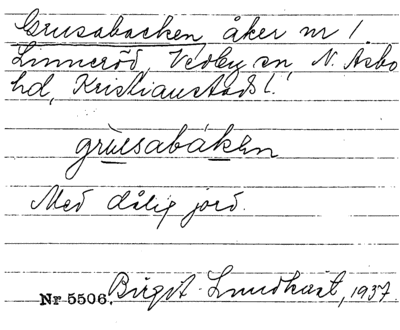 Grusabacken, åker nr 1
Linneröd, Vedby sn, N. Åsbo
hd, Kristianstads l.
grùsabákħn
Med dålig jord.
Nr 5506. Birgit Lundkvist, 1937